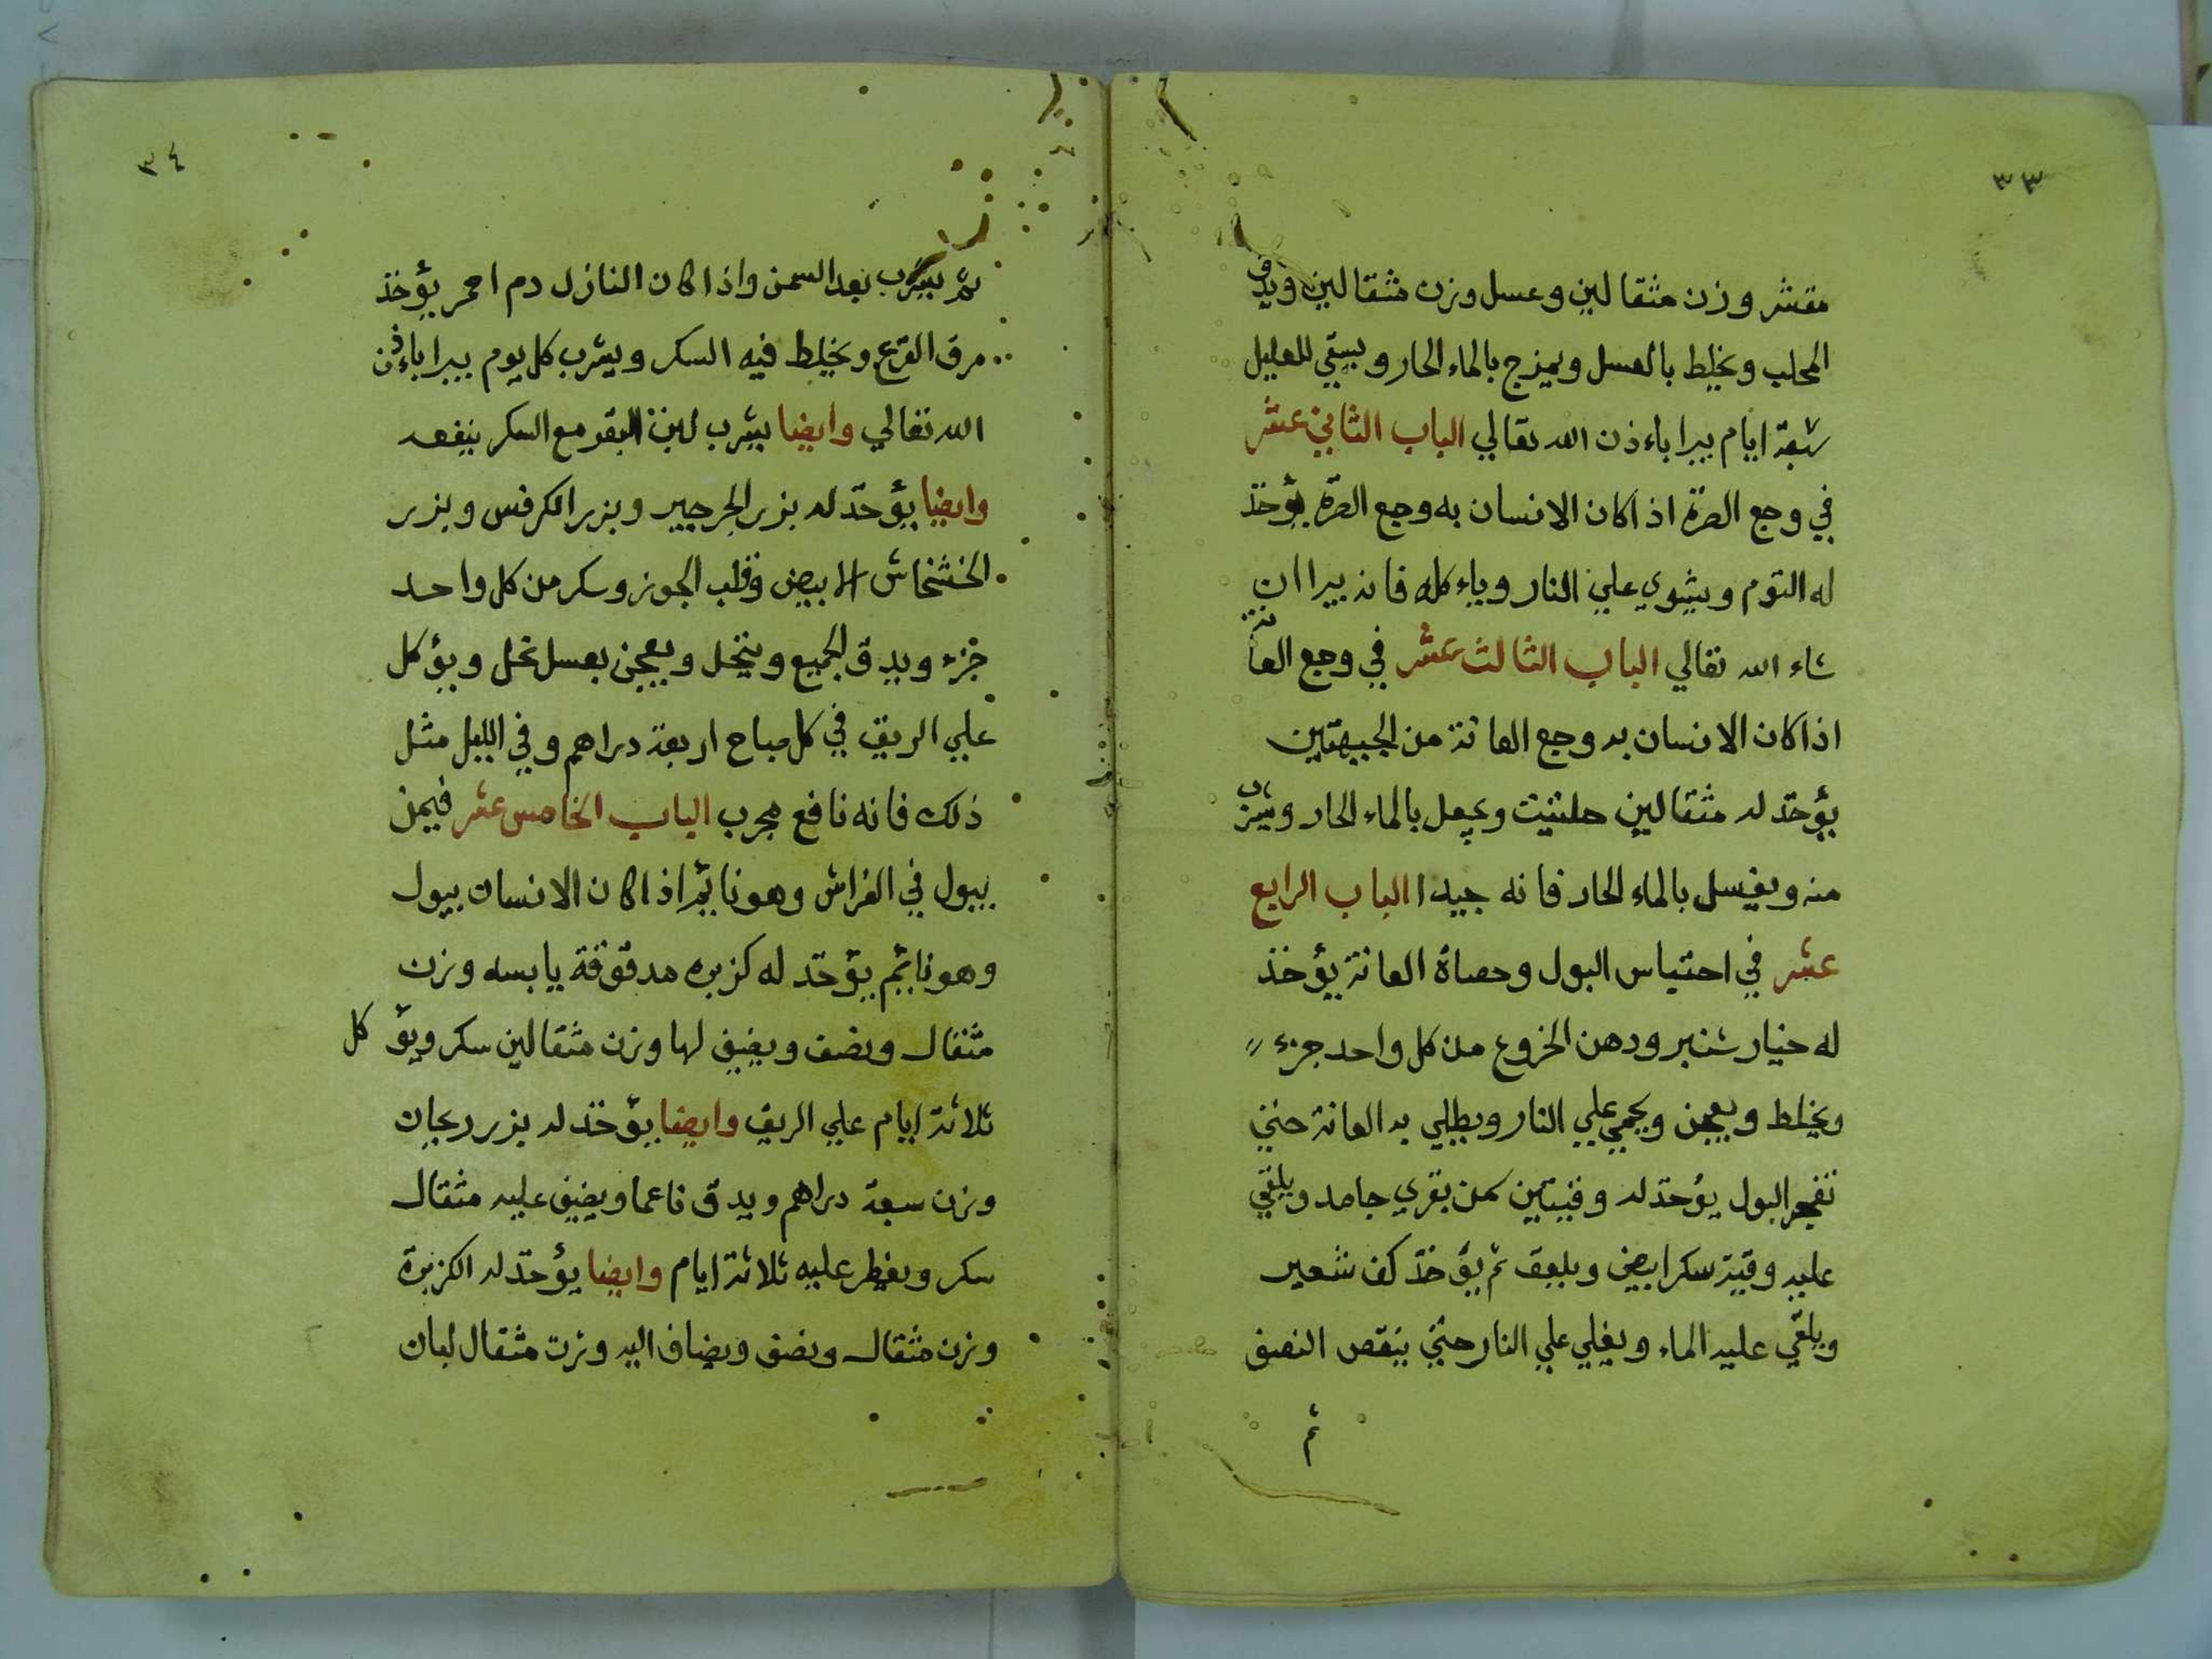 ٣٣
مقشر وزن مثقالين وعسل وزن مثقالين ويدق
المحلب ويخلط بالعسل ويمزج بالماء الحار ويسقي للعليل
سبعة ايام يبرا باءذن الله تعالي الباب الثاني عشر
في وجع الصرة اذا كان الانسان به وجع الصرة يؤخذ
له التوم ويشوي علي النار وياءكله فانه يبرا ان
شاء الله تعالي الباب الثالث عشر في وجع العانة
اذا كان الانسان به وجع العانة من الجبهتين
يؤخذ له مثقالين حلتيت ويجعل بالماء الحار ويشرب
منه ويغسل بالماء الحار فانه جيدا الباب الرابع
عشر في احتباس البول وحصاة العانة يؤخذ
له خيار شنبر ودهن الخروع من كل واحد جزء
ويخلط ويعجن ويحمي علي النار ويطلي به العانة حتي
تفجر البول يؤخذ له وقيتين سمن بقري جامد ويلقي
عليه وقية سكر ابيض ويلعق ثم يؤخذ كف شعير
ويلقي عليه الماء ويغلي علي النار حتي ينقص النصف
ثم
٣٤
ثم يشرب بعد السمن واذا كان النازل دم احمر يؤخذ
مرق القرع ويخلط فيه السكر ويشرب كل يوم يبرا باءذن
الله تعالي وايضا يشرب لبن البقر مع السكر ينفعه
وايضا يؤخذ له بزر الجرجير وبزر الكرفس وبزر
الخشخاش الابيض وقلب الجوز وسكر من كل واحد
جزء ويدق الجميع وينخل ويعجن بعسل نحل ويؤكل
علي الريق في كل صباح اربعة دراهم وفي الليل مثل
ذلك فانه نافع مجرب الباب الخامس عشر فيمن
يبول في الفراش وهو نايم اذا كان الانسان يبول
وهو نايم يؤخذ له كزبره مدقوقة يابسه وزن
مثقال ونصف ويضيف لها وزن مثقالين سكر ويؤكل
ثلاثة ايام علي الريق وايضا يؤخذ له بزر ريحان
وزن سبعة دراهم ويدق ناعما ويضيف عليه مثقال
سكر ويفطر عليه ثلاثة ايام وايضا يؤخذ له الكزبرة
وزن مثقال ونصف ويضاف اليه وزن مثقال لبان